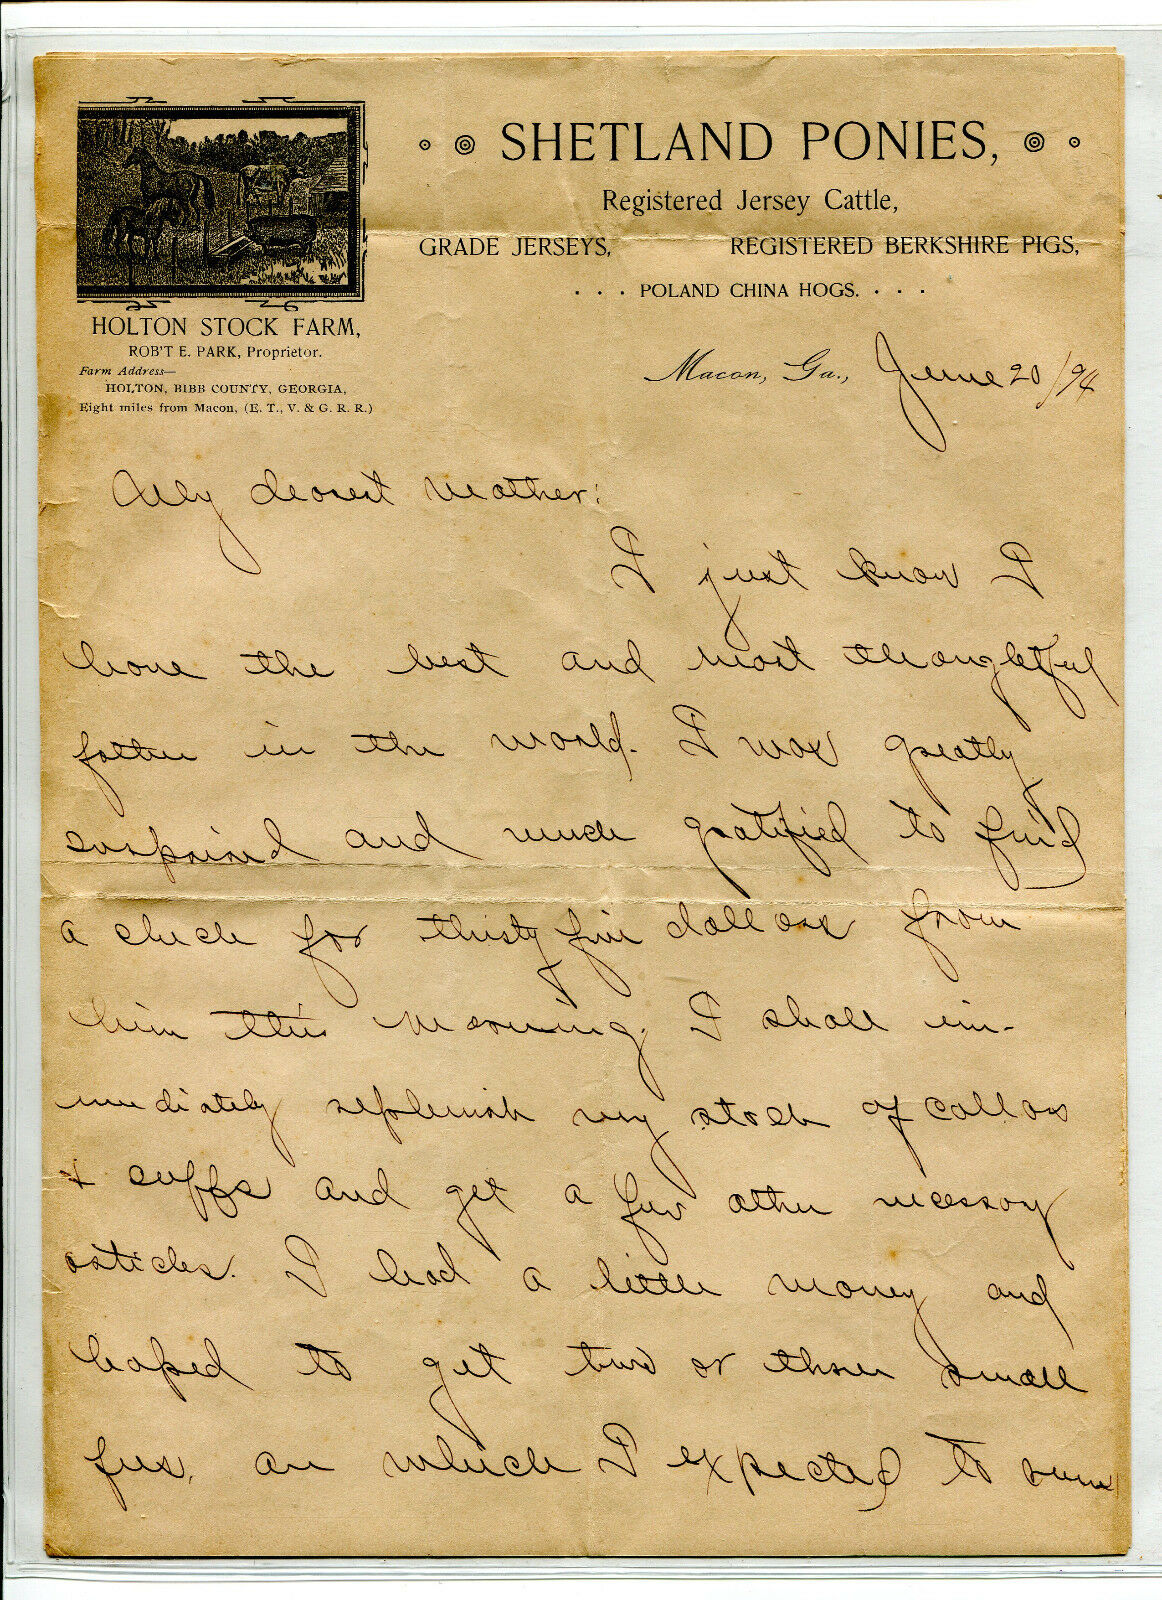 SHETLAND PONIES,
Registered Jersey Cattle,
GRADE JERSEYS, REGISTERED BERKSHIRE PIGS,
. . . POLAND CHINA HOGS. . . .
HOLTON STOCK FARM,
ROB'T E. PARK, Proprietor.
Farm Address—
HOLTON, BIBB COUNTY, GEORGIA,
Eight miles from Macon, (E. T., V. & G. R. R.)
Macon, Ga., June 20/94
My dearest Mother:
I just know I
have the best and most thoughtful
father in the world. I was greatly
surprised and much gratified to find
a check for thirty five dollars from
him this morning. I shall im-
mediately replenish my stock of collars
& cuffs and get a few other necessary
articles. I had a little money and
hoped to get two or three small
fees, on which I expected to run